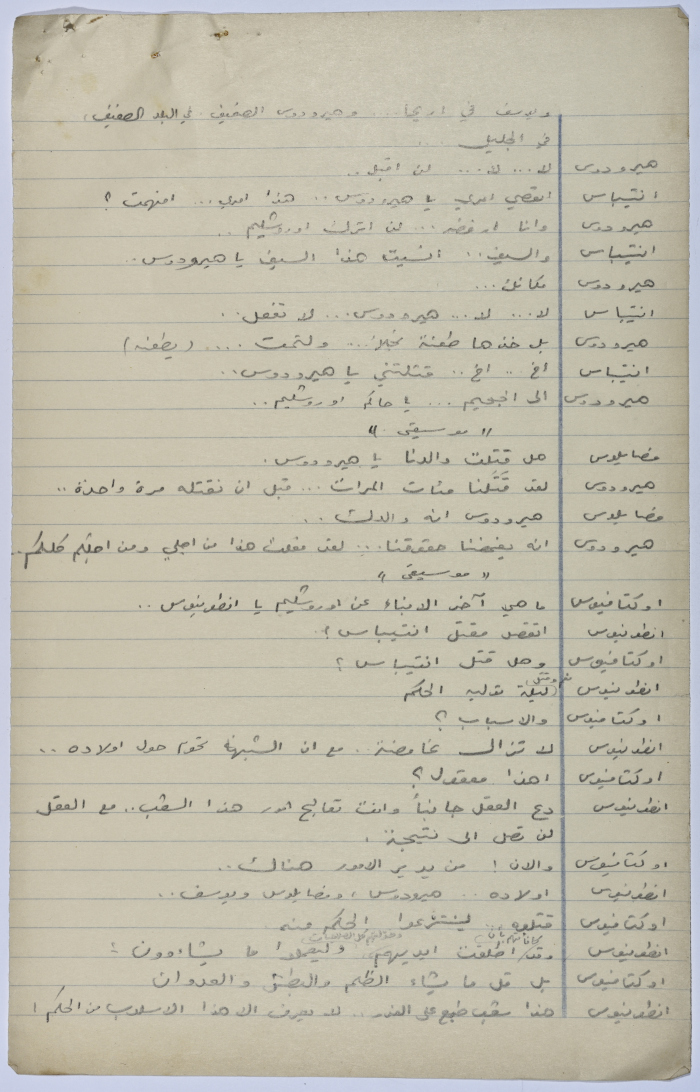 ويوسف في اريحا ... وهيرودوس الصغير، في البلد الصغير،
في الجليل ....
هيرودوس لا ... لا .... لن اقبل ..
انتيباس اتعصي امري يا هيرودوس .. هذا امري ... افهمت ؟
هيرودوس وانا ارفضه ... لن اترك اوروشليم ..
انتيباس والسيف .. انسيت هذا السيف يا هيرودوس ..
هيرودوس مكانك ...
انتيباس لا ... لا ... هيرودوس ... لا تفعل ..
هيرودوس بل خذها طعنة نجلاء ... ولتمت .... (يطعنه)
انتيباس أخ .. اخ .. قتلتني يا هيرودوس ..
هيرودوس الى الجحيم ... يا حاكم اوروشليم ..
" موسيقى "
فضايلوس هل قتلت والدنا يا هيرودوس .
هيرودوس لقد قتلنا مئات المرات ... قبل ان نقتله مرة واحدة ..
فضايلوس هيرودوس انه والدك ..
هيرودوس انه يغمضنا حقوقنا ... لقد فعلت هذا من اجلي ومن اجلكم كلكم ..
" موسيقى "
اوكتافيوس ما هي آخر الانباء عن اوروشليم يا انطونيوس ..
انطونيوس اتقصد مقتل انتيباس ؟
اوكتافيوس وهل قتل انتيباس ؟
انطونيوس ليلة توليه الحكم
اوكتافيوس والاسباب ؟
انطونيوس لا تزال غامضة .. مع ان الشبهة تحوم حول اولاده ..
اوكتافيوس اهذا معقول ؟
انطونيوس دع العقل جانباً وانت تعالج امور هذا الشعب .. مع العقل
لن تصل الى نتيجة .
اوكتافيوس والان ! من يدير الامور هناك ..
انطونيوس اولاده .. هيرودوس ، وفضايلوس ويوسف ..
اوكتافيوس قتلوه .. لينتزعوا الحكم منه
انطونيوس وقد اطلقت ايديهم، وليعملوا ما يشاءوون :
اوكتافيوس بل قل ما يشاء الظلم والبطش والعدوان
انطونيوس هذا شعب طبع على الغدر .. لا يعرف الا هذا الاسلوب من الحكم !